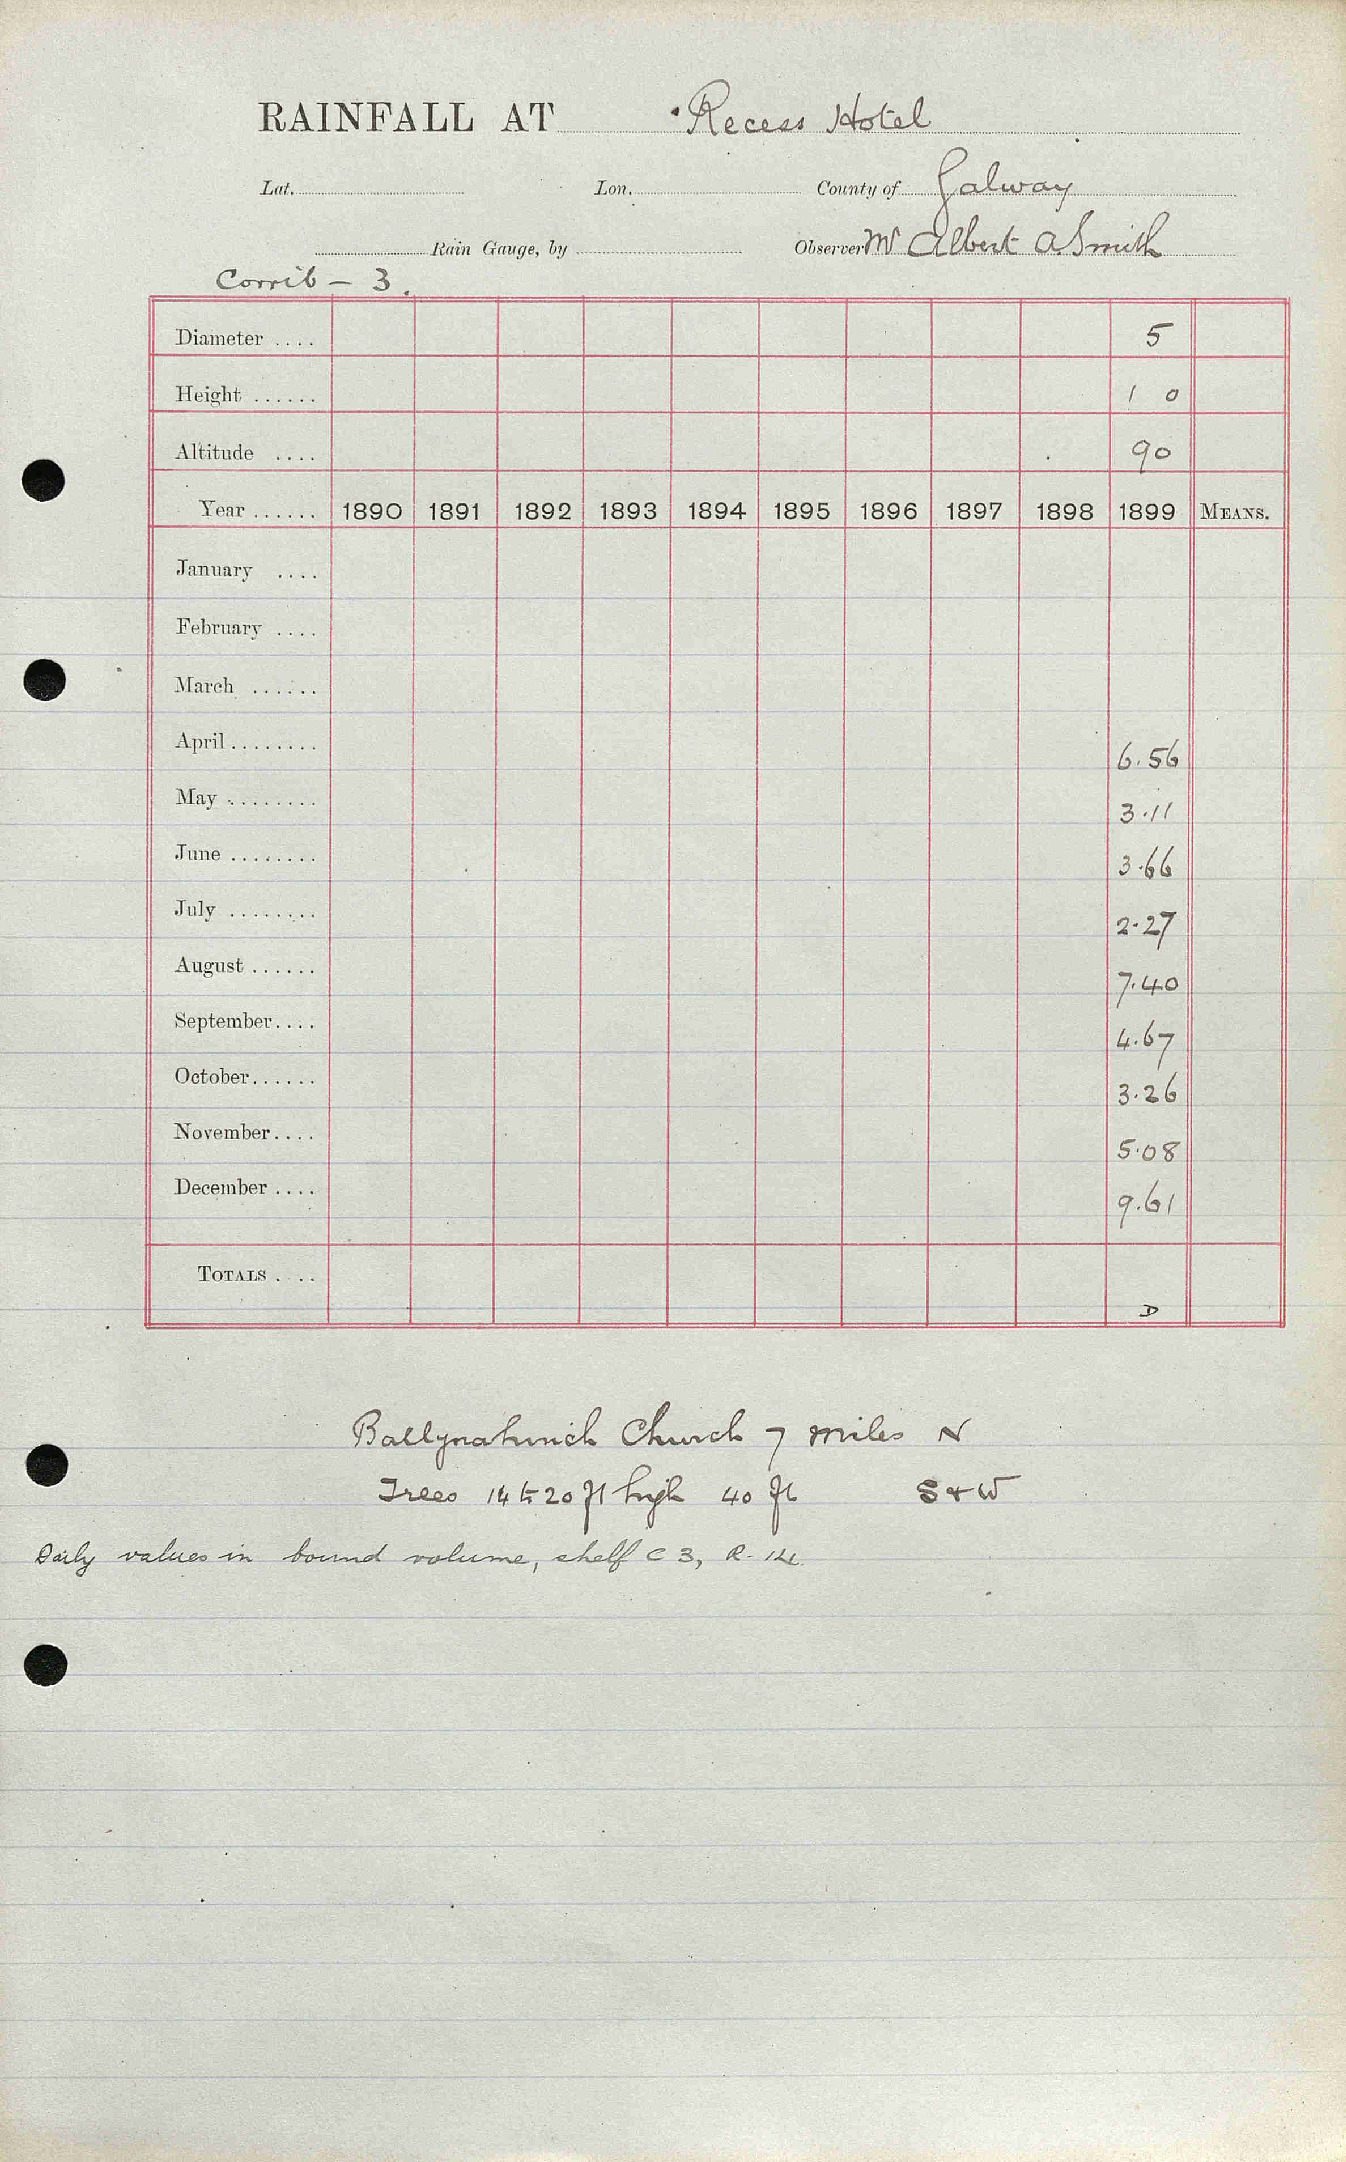 RAINFALL AT Recess Hotel
Lat. Lon. County of Galway
Rain Gauge, by Observer Mr Albert A. Smith
Corrib - 3.
Diameter .... 5
Height ...... 1 0
Altitude .... 90
Year ...... 1890 1891 1892 1893 1894 1895 1896 1897 1898 1899 MEANS.
January ....
February ....
March ......
April ........ 6.56
May ........ 3.11
June ........ 3.66
July ........ 2.27
August ...... 7.40
September.... 4.67
October...... 3.26
November.... 5.08
December .... 9.61
TOTALS ....
D
Ballynahinch Church 7 miles N
Trees 14 to 20 ft high 40 ft S & W
Daily values in bound volume, shelf C 3, R-14.